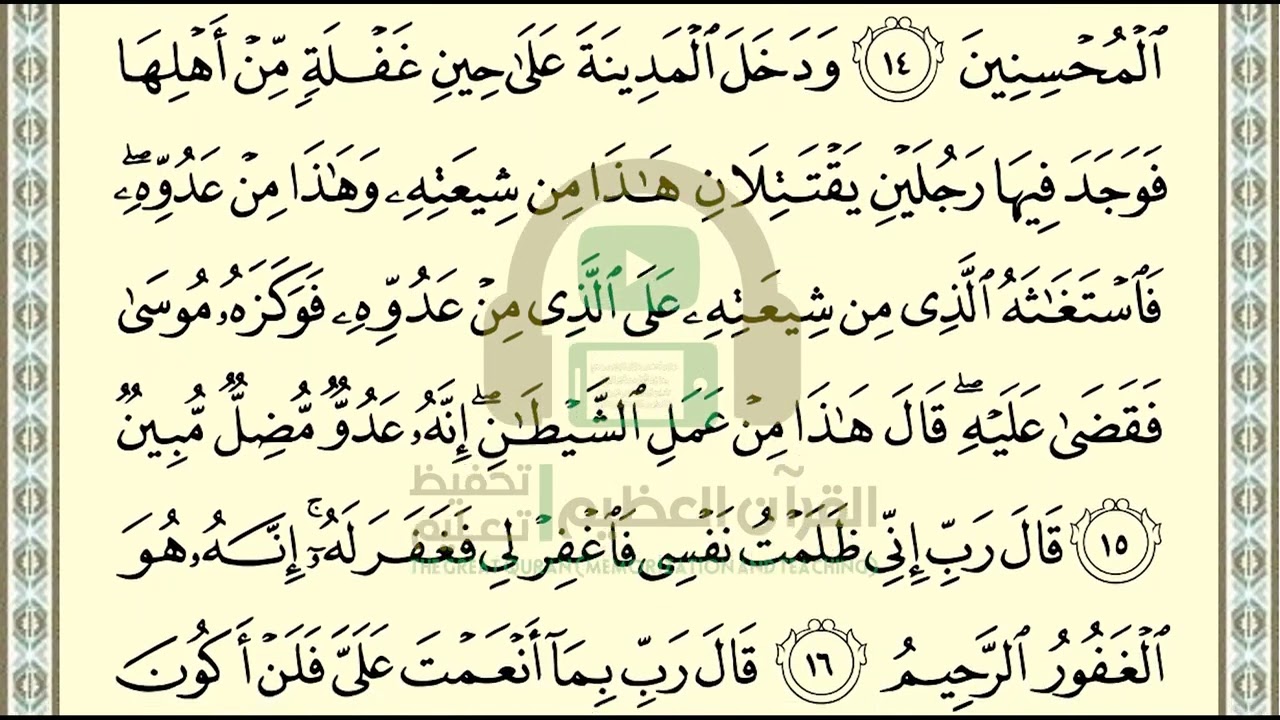 ٱلْمُحْسِنِينَ ١٤ وَدَخَلَ ٱلْمَدِينَةَ عَلَىٰ حِينِ غَفْلَةٍ مِّنْ أَهْلِهَا
فَوَجَدَ فِيهَا رَجُلَيْنِ يَقْتَتِلَانِ هَٰذَا مِن شِيعَتِهِۦ وَهَٰذَا مِنْ عَدُوِّهِۦۖ
فَٱسْتَغَٰثَهُ ٱلَّذِى مِن شِيعَتِهِۦ عَلَى ٱلَّذِى مِنْ عَدُوِّهِۦ فَوَكَزَهُۥ مُوسَىٰ
فَقَضَىٰ عَلَيْهِۖ قَالَ هَٰذَا مِنْ عَمَلِ ٱلشَّيْطَٰنِۖ إِنَّهُۥ عَدُوٌّ مُّضِلٌّ مُّبِينٌ
تحفيظ القرآن العظيم
تعليم
١٥ قَالَ رَبِّ إِنِّى ظَلَمْتُ نَفْسِى فَٱغْفِرْ لِى فَغَفَرَ لَهُۥٓۚ إِنَّهُۥ هُوَ
THE GREAT QURAN (MEMORIZATION AND TEACHING)
ٱلْغَفُورُ ٱلرَّحِيمُ ١٦ قَالَ رَبِّ بِمَآ أَنْعَمْتَ عَلَىَّ فَلَنْ أَكُونَ